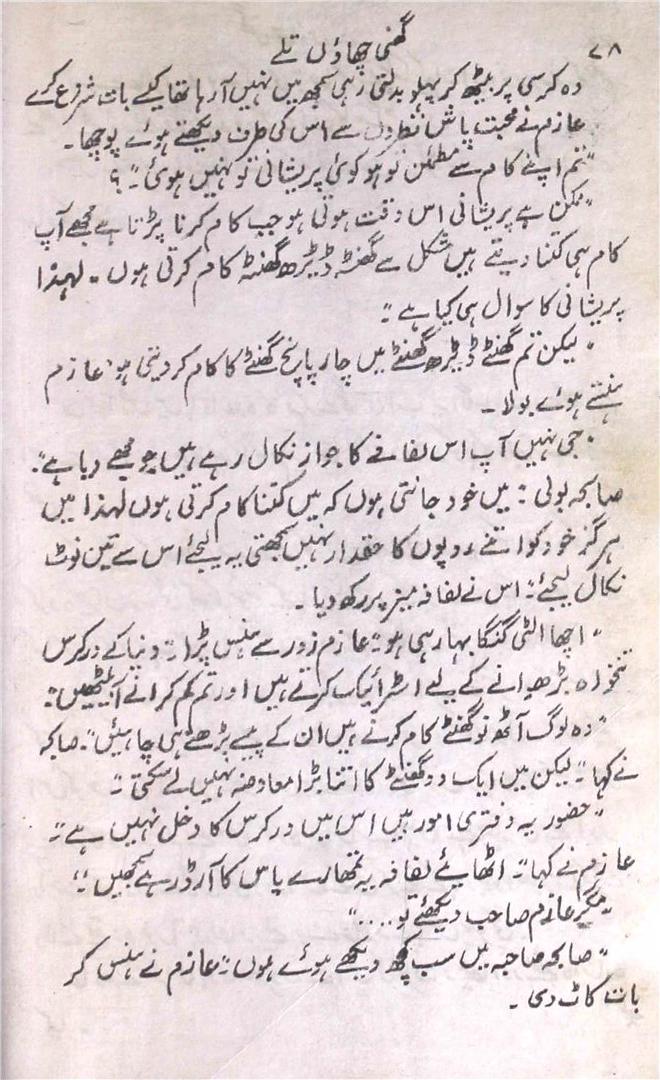 ۷۸
گھنی چھاؤں تلے
وہ کرسی پر بیٹھ کر پہلو بدلتی رہی سمجھ میں نہیں آ رہا تھا کیسے بات شروع کرے
عازم نے محبت پاش نظروں سے اس کی طرف دیکھتے ہوئے پوچھا۔
"تم اپنے کام سے مطمئن تو ہو کوئی پریشانی تو نہیں ہوئی"۔ ؟
"ممکن ہے پریشانی اس وقت ہوتی ہو جب کام کرنا پڑتا ہے مجھے آپ
کام ہی کتنا دیتے ہیں مشکل سے گھنٹہ ڈیڑھ گھنٹہ کام کرتی ہوں ۔ لہذا
پریشانی کا سوال ہی کیا ہے"۔
"لیکن تم گھنٹے ڈیڑھ گھنٹے میں چار پانچ گھنٹے کا کام کر دیتی ہو" عازم
ہنستے ہوئے بولا۔
"جی نہیں آپ اس لفافے کا جواز نکال رہے ہیں جو مجھے دیا ہے"۔
صابحہ بولی : میں خود جانتی ہوں کہ میں کتنا کام کرتی ہوں لہذا میں
ہرگز خود کو اتنے روپوں کا حقدار نہیں سمجھتی یہ لیجئے اس سے تین نوٹ
نکال لیجئے"۔ اس نے لفافہ میز پر رکھ دیا ۔
"اچھا الٹی گنگا بہا رہی ہو"۔ عازم زور سے ہنس پڑا "۔ دنیا کے ورکرس
تنخواہ بڑھوانے کے لیے اسٹرائیک کرتے ہیں اور تم کم کرانے آ بیٹھیں"۔
"وہ لوگ آٹھ نو گھنٹے کام کرتے ہیں ان کے پیسے بڑھنے ہی چاہئیں"۔ صابحہ
نے کہا "۔ لیکن میں ایک دو گھنٹے کا اتنا بڑا معاوضہ نہیں لے سکتی"۔
"حضور یہ دفتری امور ہیں اس میں ورکرس کا دخل نہیں ہے"۔
عازم نے کہا "۔ اٹھایئے لفافہ یہ تمھارے باس کا آرڈر ہے سمجھیں"؛
"مگر عازم صاحب دیکھئے تو ...."
"صابحہ صاحبہ میں سب کچھ دیکھے ہوئے ہوں"۔ عازم نے ہنس کر
بات کاٹ دی ۔